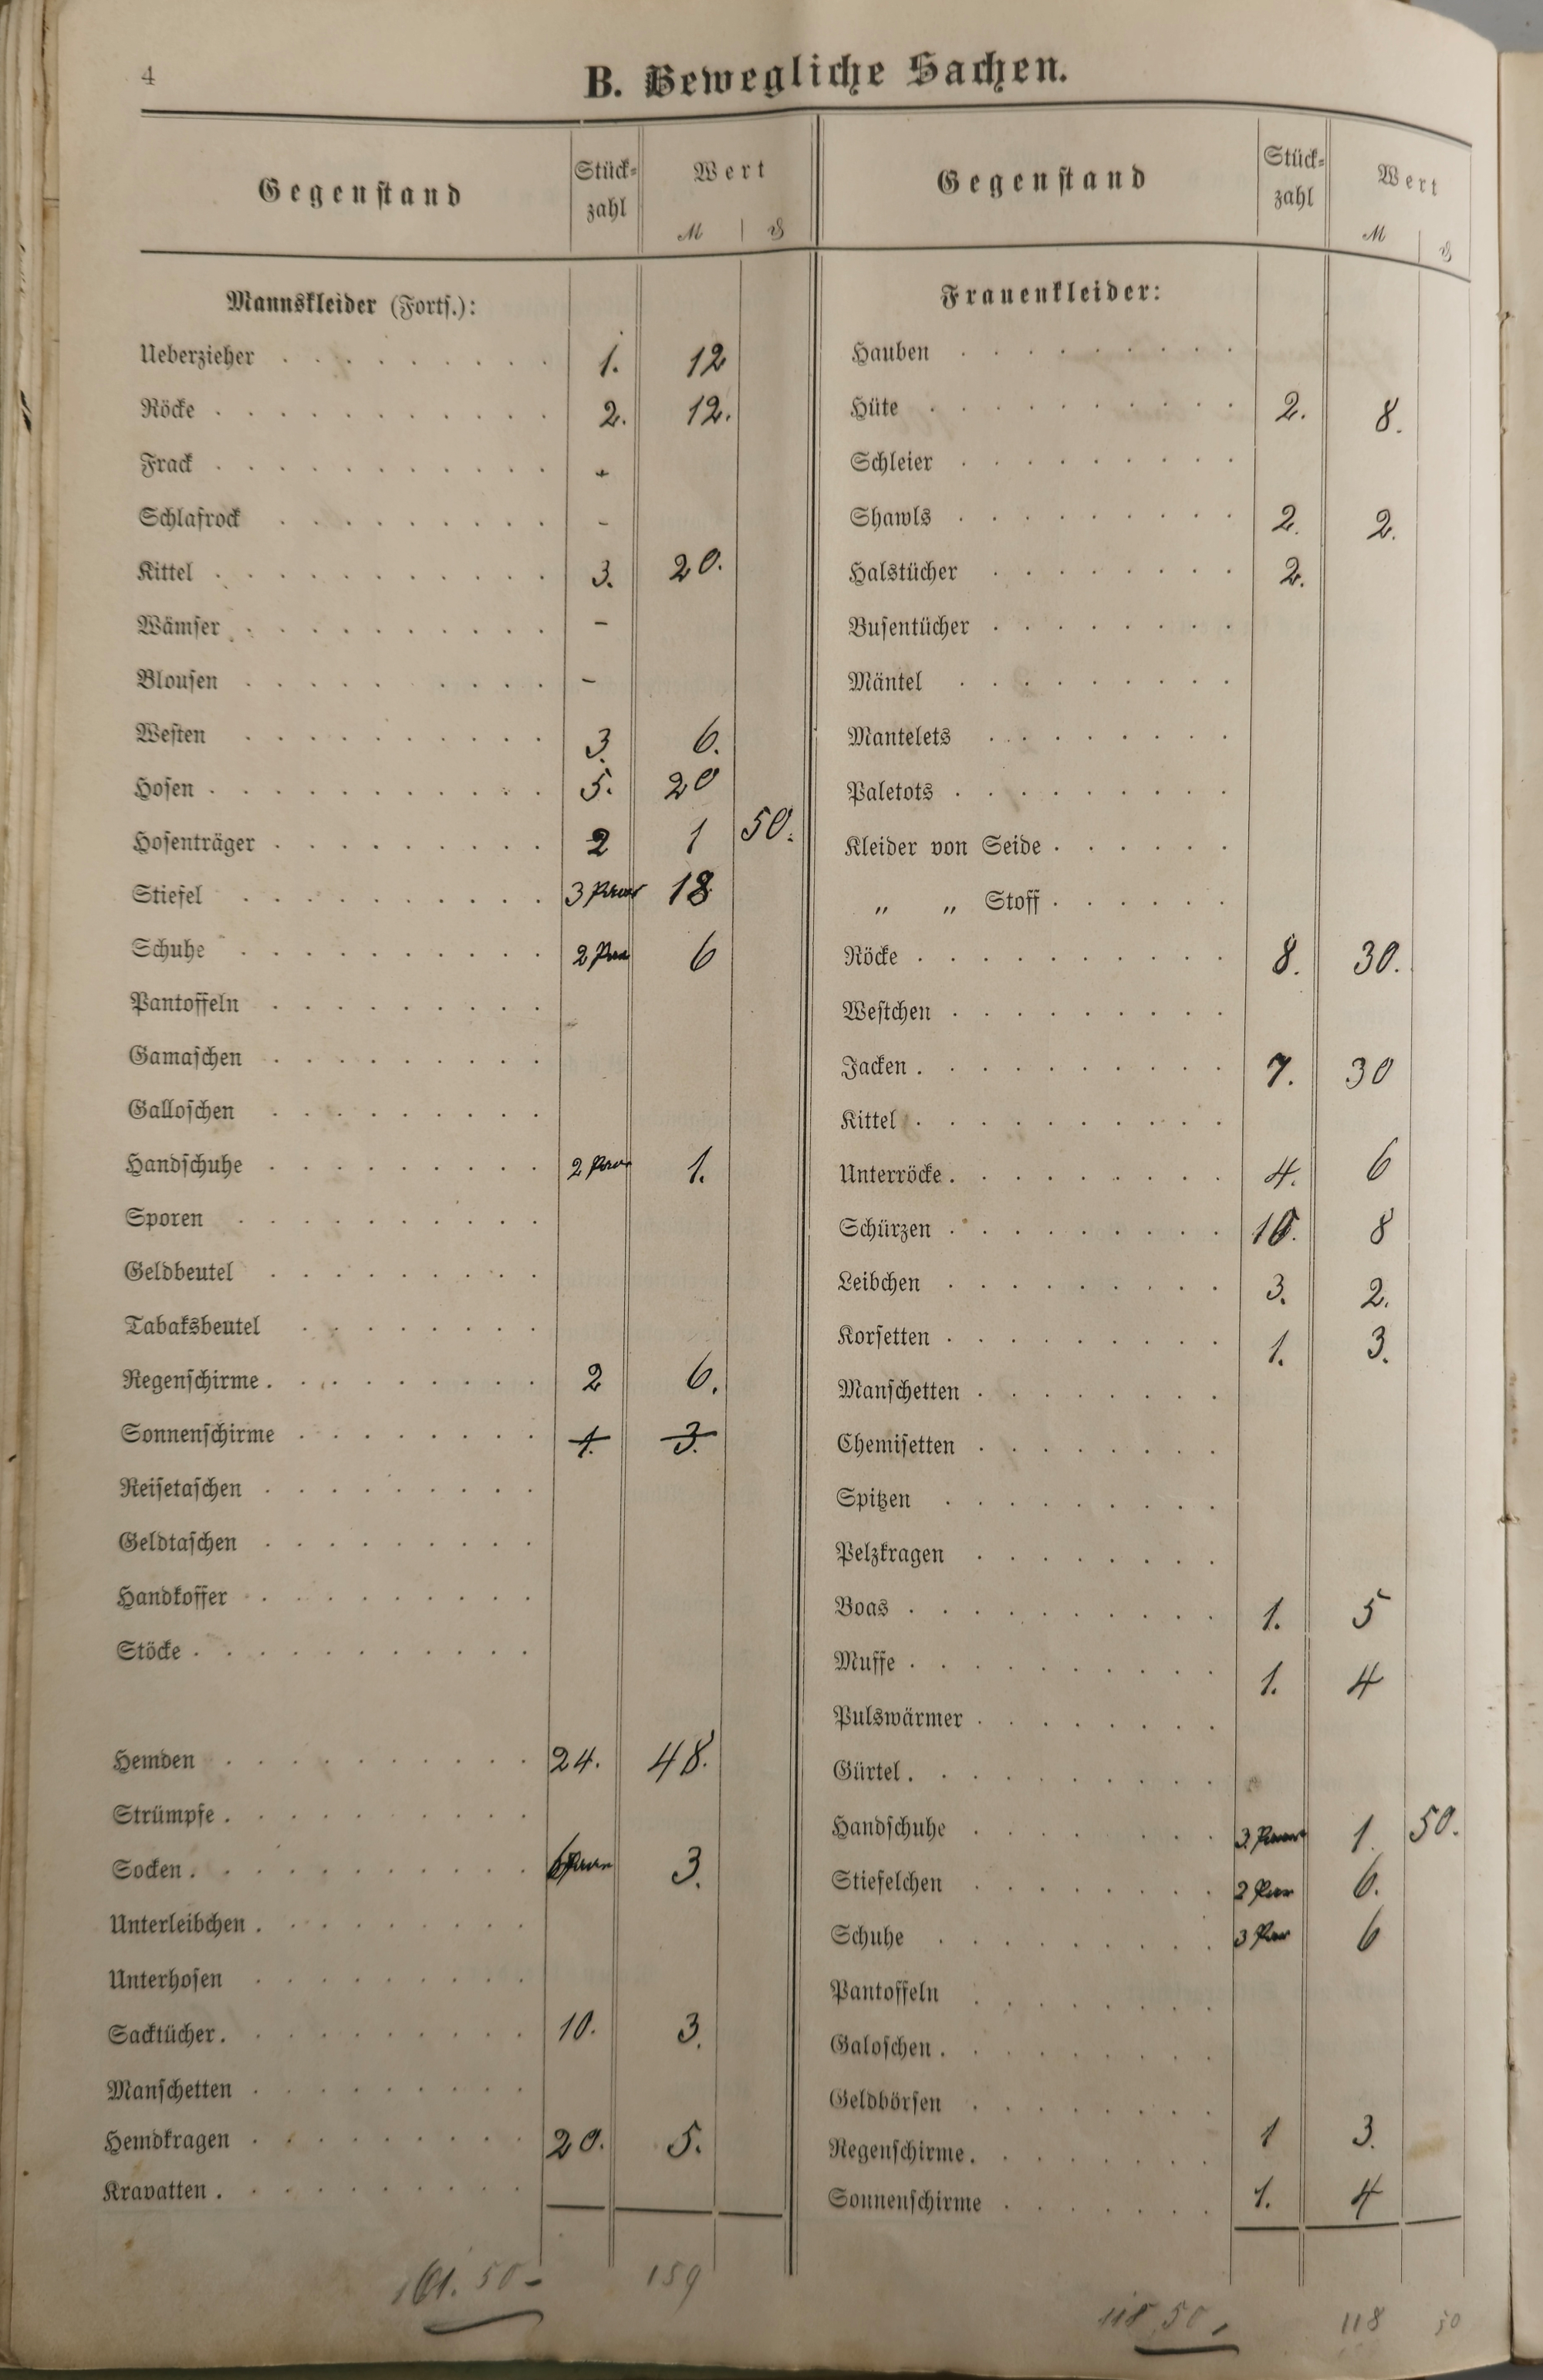 4
B. Bewegliche Sachen.
Gegenstand Stück-zahl Wert M ₰
Mannskleider (Forts.):
Ueberzieher 1. 12
Röcke 2. 12.
Frack -
Schlafrock -
Kittel 3. 20.
Wämser -
Blousen -
Westen 3. 6.
Hosen 5. 20
Hosenträger 2 1 50.
Stiefel 3 Paar 18
Schuhe 2 Paar 6
Pantoffeln
Gamaschen
Galloschen
Handschuhe 2 Paar 1.
Sporen
Geldbeutel
Tabaksbeutel
Regenschirme 2 6.
Sonnenschirme 1. 3.
Reisetaschen
Geldtaschen
Handkoffer
Stöcke
Hemden 24. 48.
Strümpfe
Socken 6 Paar 3.
Unterleibchen
Unterhosen
Sacktücher 10. 3.
Manschetten
Hemdkragen 20. 5.
Kravatten
161.50- 159
Gegenstand Stück-zahl Wert M ₰
Frauenkleider:
Hauben
Hüte 2. 8.
Schleier
Shawls 2. 2.
Halstücher 2.
Busentücher
Mäntel
Mantelets
Paletots
Kleider von Seide
„ „ Stoff
Röcke 8. 30.
Westchen
Jacken 7. 30
Kittel
Unterröcke 4. 6
Schürzen 10. 8
Leibchen 3. 2.
Korsetten 1. 3.
Manschetten
Chemisetten
Spitzen
Pelzkragen
Boas 1. 5
Muffe 1. 4
Pulswärmer
Gürtel
Handschuhe 3 Paar 1. 50.
Stiefelchen 2 Paar 6.
Schuhe 3 Paar 6
Pantoffeln
Galoschen
Geldbörsen
Regenschirme 1 3.
Sonnenschirme 1. 4
118.50. 118 50